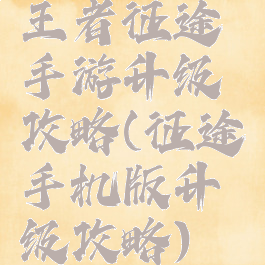 王者征途
手游升级
攻略(征途
手机版升
级攻略)